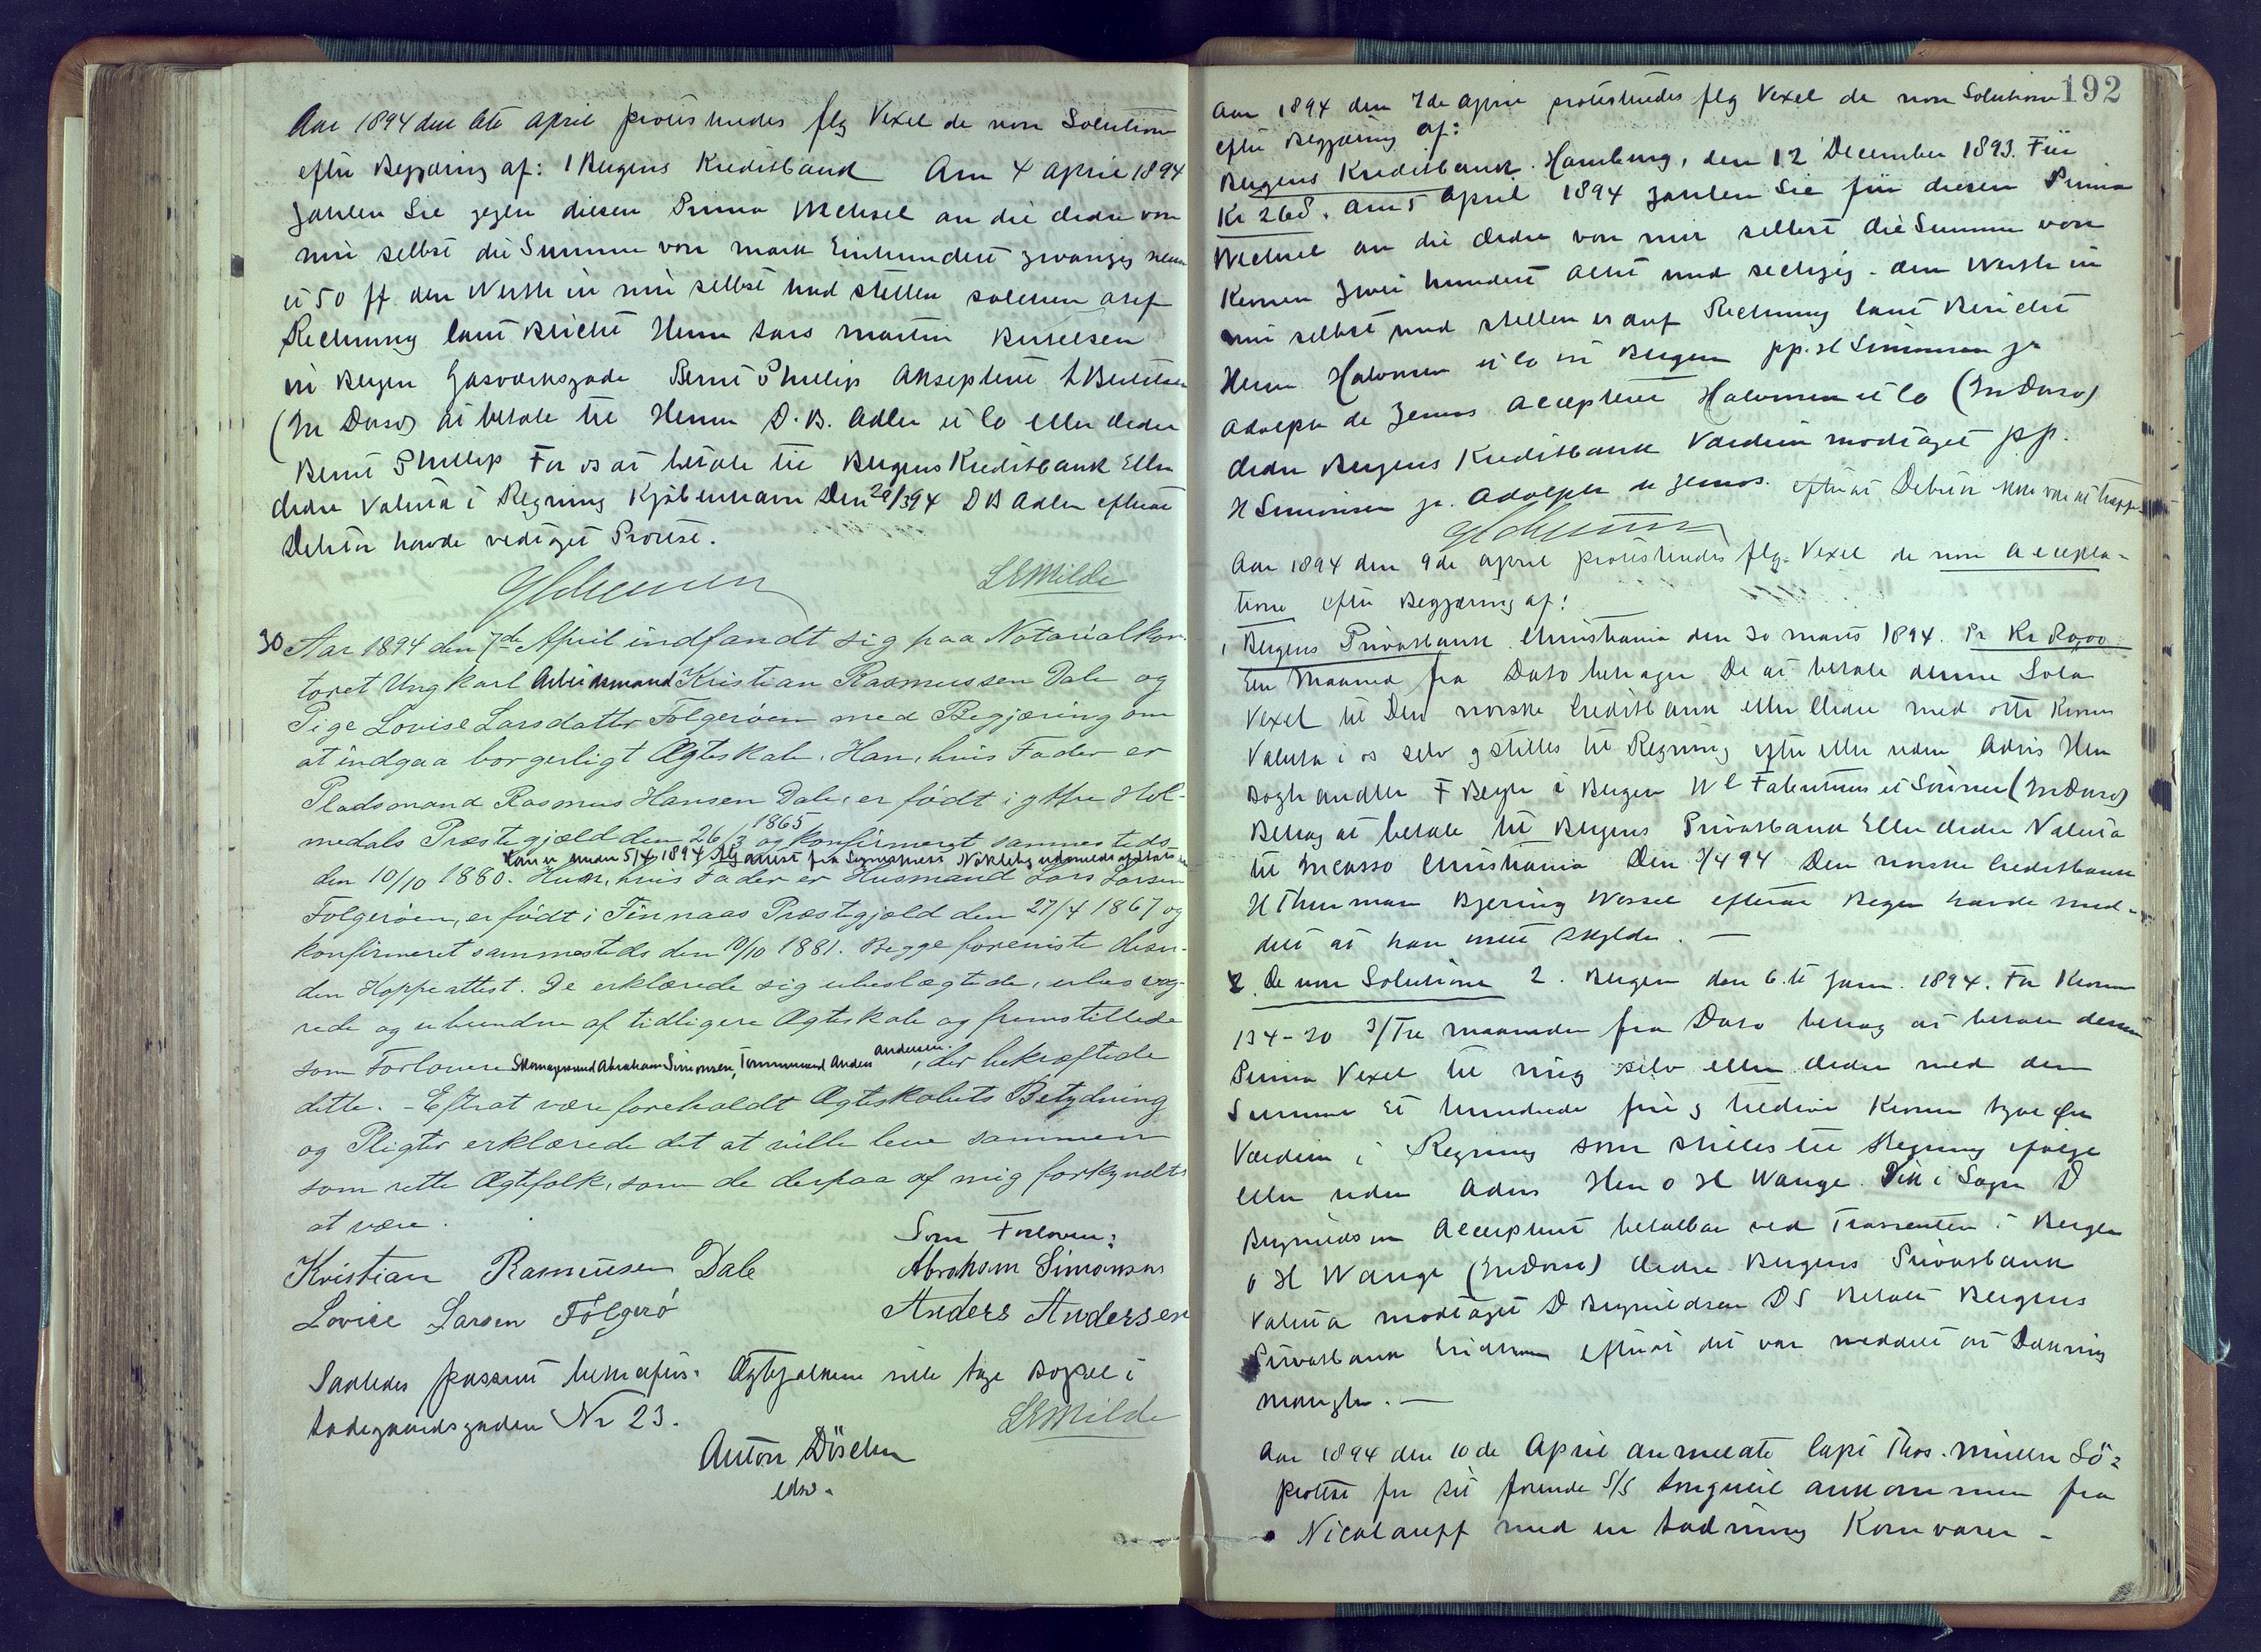 Aar 1894 den 6te April protesteredes flg Vexel de non Solutione
efter Begjæring af: 1 Bergens Kreditbank Am 4 April 1894
zahlen Sie gegen diesen Prima Wechsel an die Ordre von
mir selbst die Summe von mark Einhundert zwanzig neun
et 50 pf den Werth in mir selbst und stellen solchen auf
Rechnung laut Bericht Herrn Lars Martin Bertelsen
in Bergen Gasværksgade Bernt Phillip Akseptert L Bertelsen
(In Dorso) at betale til Herrer D. B. Adler et Co eller Ordre
Bernt Phillip For os at betale til Bergens Kreditbank Eller
Ordre Valuta i Regning Kjøbenhavn Den 29/3 94 D B Adler efterat
Debitor havde vedtaget Protest.
LEMilde
30 Aar 1894 den 7de April indfandt sig paa Notarialkon-
toret Ungkarl Arbeidsmand Kristian Rasmussen Dale og
Pige Lovise Larsdatter Folgerøen med Begjæring om
at indgaa borgerligt Ægteskab. Han, hvis Fader er
Pladsmand Rasmus Hansen Dale, er født i yttre Hol-
medals Præstegjæld den 26/3 1865 og konfirmeret sammesteds
Han er under 5/4 1894 fra Sognepræst
den 10/10 1880. Hun, hvis Fader er Husmand Lars Larsen
Folgerøen, er født i Finnaas Præstegjæld den 27/4 1867 og
konfirmeret sammesteds den 10/10 1881. Begge foreviste desu-
den Koppeattest. De erklærede sig ubeslægtede, ubesvog-
rede og ubundne af tidligere Ægteskab og fremstillede
som Forlovere Skomagersvend Abraham Simonsen, Tømmermand Anders Andersen, der bekræftede
dette. - Efterat være foreholdt Ægteskabets Betydning
og Pligter erklærede det at ville leve sammen
som rette Ægtefolk, som de derpaa af mig forkyndtes
at være.
Som Forlovere:
Kristian Rasmussen Dale Abraham Simonsen
Lovise Larsen Følgerø Anders Andersen
Saaledes passeret bekræftes. Ægtefolkene ville tage Bopæl i
Ladegaardsgaden No 23.
LEMilde
Anton Döscher
edsv.
192
Aar 1894 den 7de April protesteredes flg Vexel de non Solutione
efter Begjæring af:
Bergens Kreditbank. Hamburg, den 12 December 1893. Für
Kr 268. Am 5 April 1894 zahlen Sie für diesen Prima
Wechsel an die Ordre von mir selbst die Summe von
Kronen Zwei hundert Acht und sechzig. den Werth in
mir selbst und stellen es auf Rechnung laut Bericht
Herrn Halvorsen et Co in Bergen pp. H Simonsen jr
Adolph de Jemos. Accepteret Halvorsen et Co (In Dorso)
Ordre Bergens Kreditbank Værdien modtaget pp.
H Simonsen jr. Adolph de Jemos. efterat Debitor ikke var at træffe.
Aar 1894 den 9de April protesteredes flg. Vexel de non accepta-
tione efter Begjæring af:
1 Bergens Privatbank. Christiania den 30 marts 1894. Pr Kr 8,00
Een Maaned fra Dato behager De at betale denne Sola
Vexel til Den norske Creditbank eller Ordre med otte Kroner
Valuta i os selv og stilles til Regning efter eller uden Advis Herr
Boghandler F Beyer i Bergen W C Fabritius et Sønner (In Dorso)
Behag at betale til Bergens Privatbank Eller Ordre Valuta
til Incasso Christiania Den 3/4 94 Den norske Creditbank
N Thurman Bjering Wessel efterat Beyer havde med-
delt at han intet skylder. —
2. De non Solutione 2. Bergen den 6.te Janr. 1894. For Kroner
134-20 3/Tre maaneder fra Dato behag at betale denne
Prima Vexel til mig selv eller Ordre med den
Summa Et hundrede fire og tredive Kroner tyve Øre
Værdien i Regning som stilles til Regning ifølge
eller uden Advis Herr O H Wange. Vik i Sogn D
Brynildsen Accepteret betalbar ved Trassenten i Bergen
O H Wange (In Dorso) Ordre Bergens Privatbank
Valuta modtaget D Brynildsen D S Betalt Bergens
Privatbank efterat det var meddelt at Dækning
mangler. —
Aar 1894 den 10de April anmeldte Capt Thos. Miller Sö-
protest for sit førende S/S Longueil ankommen fra
Nicolaieff med en Ladning Kornvarer -